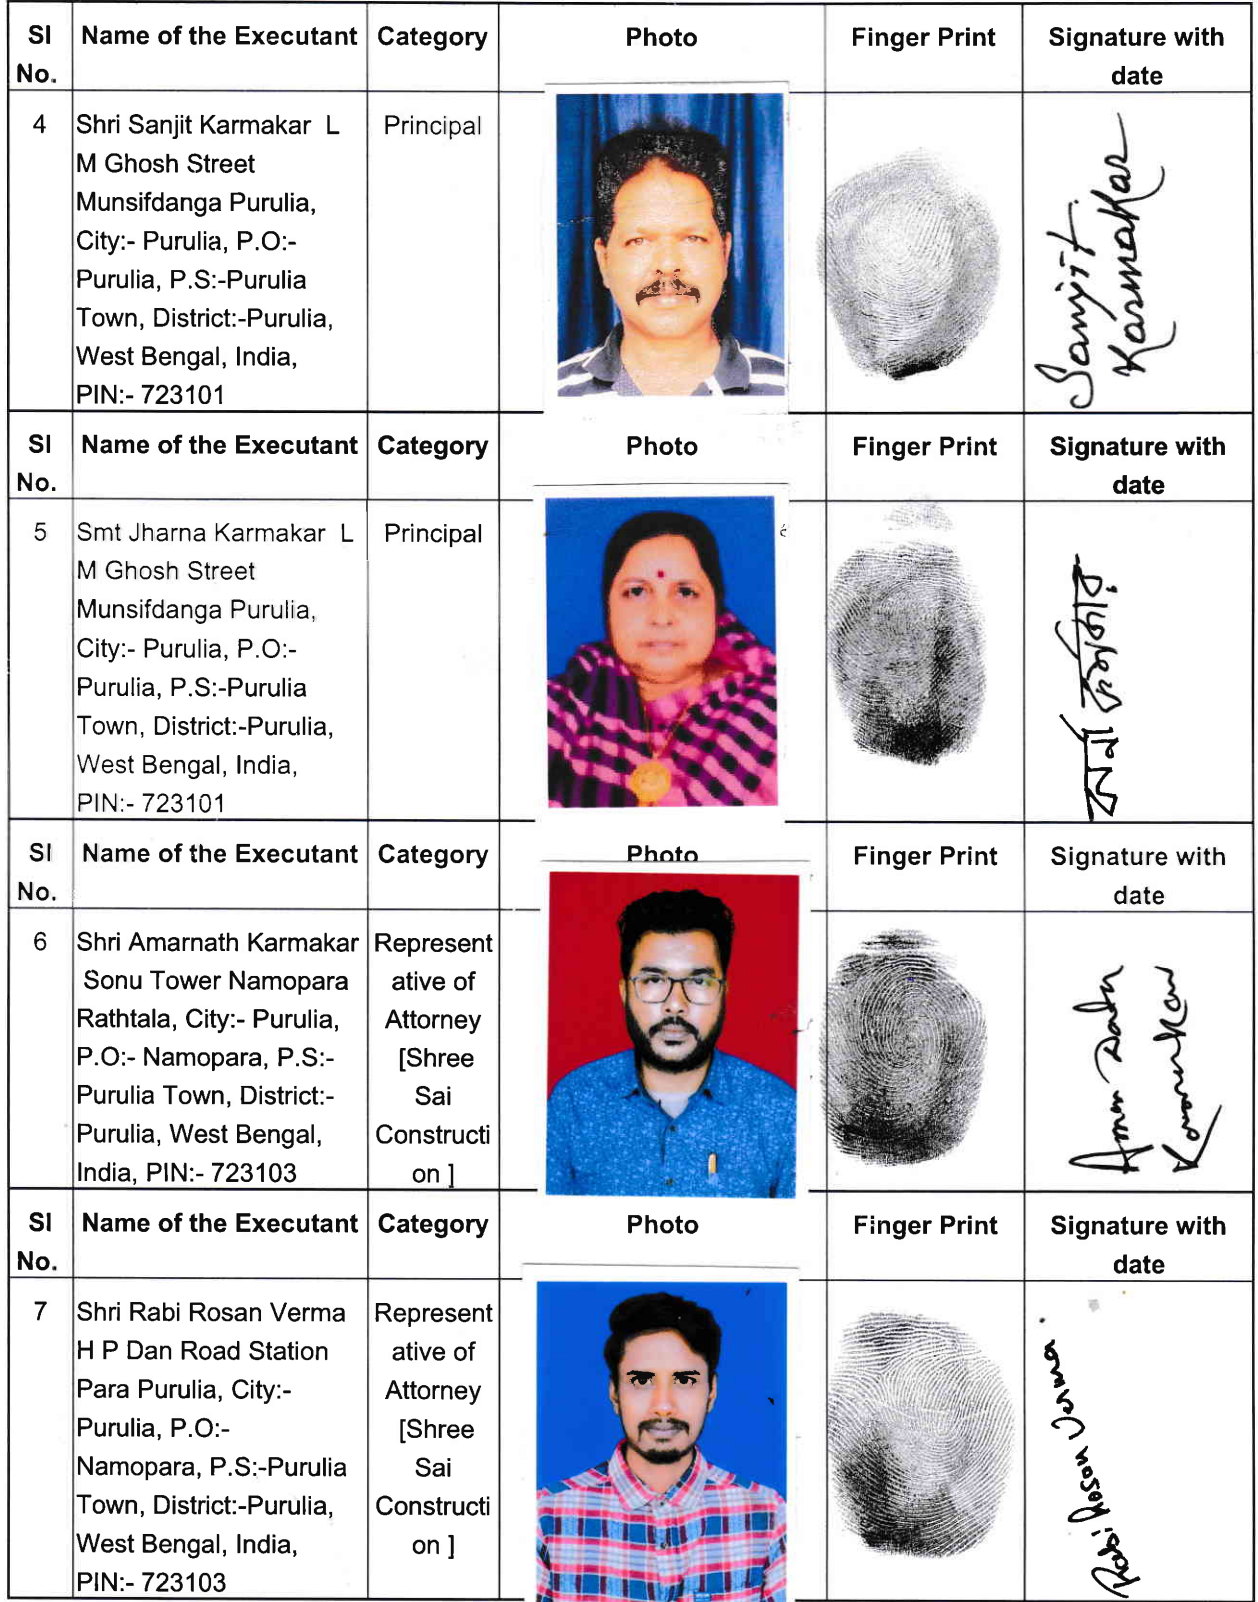 Sl No. Name of the Executant Category Photo Finger Print Signature with date
4 Shri Sanjit Karmakar L Principal
M Ghosh Street
Munsifdanga Purulia,
City:- Purulia, P.O:-
Purulia, P.S:-Purulia
Town, District:-Purulia,
West Bengal, India,
PIN:- 723101
Sanjit
Karmakar
Sl No. Name of the Executant Category Photo Finger Print Signature with date
5 Smt Jharna Karmakar L Principal
M Ghosh Street
Munsifdanga Purulia,
City:- Purulia, P.O:-
Purulia, P.S:-Purulia
Town, District:-Purulia,
West Bengal, India,
PIN:- 723101
ঝর্ণা কর্মকার
Sl No. Name of the Executant Category Photo Finger Print Signature with date
6 Shri Amarnath Karmakar
Sonu Tower Namopara
Rathtala, City:- Purulia,
P.O:- Namopara, P.S:-
Purulia Town, District:-
Purulia, West Bengal,
India, PIN:- 723103
Represent
ative of
Attorney
[Shree
Sai
Constructi
on ]
Sl No. Name of the Executant Category Photo Finger Print Signature with date
7 Shri Rabi Rosan Verma
H P Dan Road Station
Para Purulia, City:-
Purulia, P.O:-
Namopara, P.S:-Purulia
Town, District:-Purulia,
West Bengal, India,
PIN:- 723103
Represent
ative of
Attorney
[Shree
Sai
Constructi
on ]
Rabi Rosan Verma.